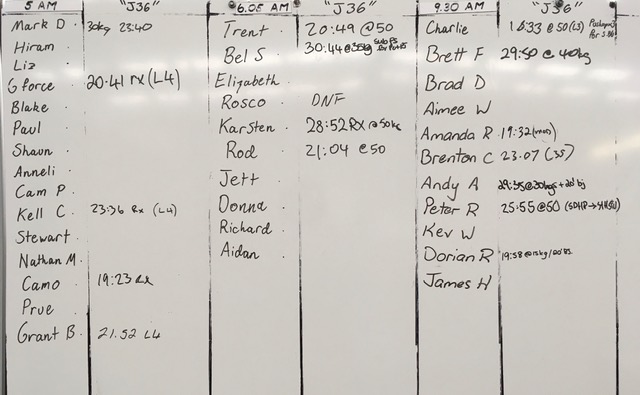 5 AM "J36"
Mark D 30kg 23:40
Hiram
Liz
G force 20.41 rx (L4)
Blake
Paul
Shaun
Anneli
Cam P
Kell C 23:36 Rx (L4)
Stewart
Nathan M
Camo 19:23 Rx
Prue
Grant B 21.52 L4
6.05 AM "J36"
Trent 20:49 @50
Bel S 30:44 @35kg
Elizabeth
Rosco DNF
Karsten 28:52 RX @50kg
Rod 21:04 @50
Jett
Donna
Richard
Aidan
9.30 AM "J36"
Charlie @50 (L3)
Brett F 29:50 @ 40kg
Brad D
Aimee W
Amanda R 19:32
Brenton C 23.07 (35)
Andy A
Peter R 25:55 @50
Kev W
Dorian R 19:58 @15kg
James H